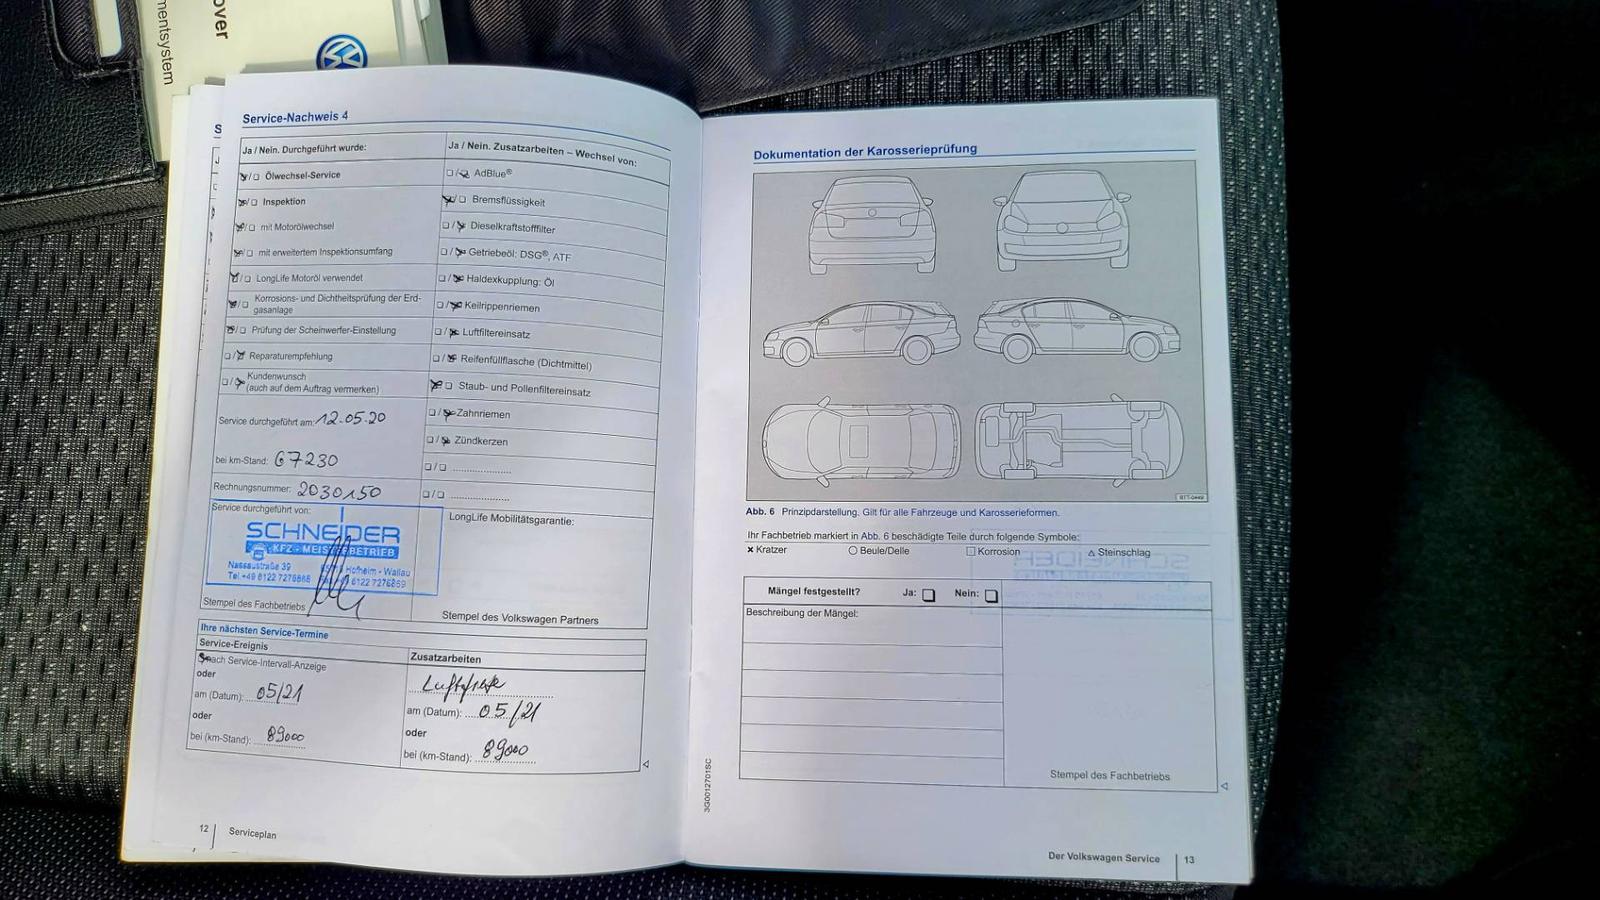 over
mentsystem
Service-Nachweis 4
Ja / Nein. Durchgeführt wurde:
Ölwechsel-Service
Inspektion
mit Motorölwechsel
mit erweitertem Inspektionsumfang
LongLife Motoröl verwendet
Korrosions- und Dichtheitsprüfung der Erd-
gasanlage
Prüfung der Scheinwerfer-Einstellung
Reparaturempfehlung
Kundenwunsch
(auch auf dem Auftrag vermerken)
Service durchgeführt am: 12.05.20
bei km-Stand: 67230
Rechnungsnummer: 2030150
Service durchgeführt von:
SCHNEIDER
KFZ-MEISTERBETRIEB
Nassaustraße 39
Hofheim - Wallau
Tel.+49 6122 7276868
6122 7276869
Stempel des Fachbetriebs
Ja / Nein. Zusatzarbeiten – Wechsel von:
AdBlue®
Bremsflüssigkeit
Dieselkraftstofffilter
Getriebeöl: DSG®, ATF
Haldexkupplung: Öl
Keilrippenriemen
Luftfiltereinsatz
Reifenfüllflasche (Dichtmittel)
Staub- und Pollenfiltereinsatz
Zahnriemen
Zündkerzen
LongLife Mobilitätsgarantie:
Stempel des Volkswagen Partners
Ihre nächsten Service-Termine
Service-Ereignis
nach Service-Intervall-Anzeige
oder
am (Datum): 05/21
oder
bei (km-Stand): 89000
Zusatzarbeiten
am (Datum): 05/21
oder
bei (km-Stand): 89000
12 Serviceplan
Dokumentation der Karosserieprüfung
Abb. 6 Prinzipdarstellung. Gilt für alle Fahrzeuge und Karosserieformen.
Ihr Fachbetrieb markiert in Abb. 6 beschädigte Teile durch folgende Symbole:
Kratzer
Beule/Delle
Korrosion
Steinschlag
Mängel festgestellt? Ja: Nein:
Beschreibung der Mängel:
Stempel des Fachbetriebs
3G0012701SC
Der Volkswagen Service 13